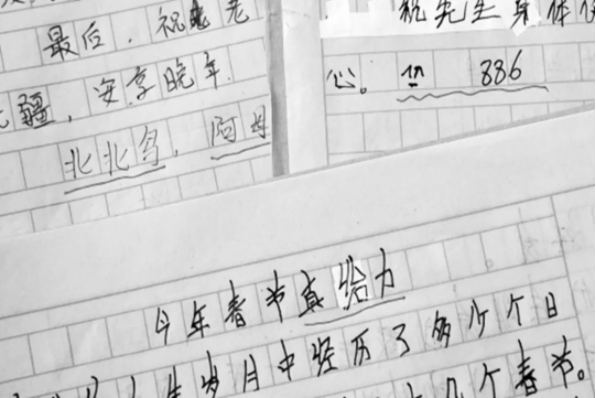 最后，祝老
疆，安享晚年.
北北鸟，阿母
祝先生身体
心。 886
今年春节真给力
岁月中经历了多少个日
几个春节。